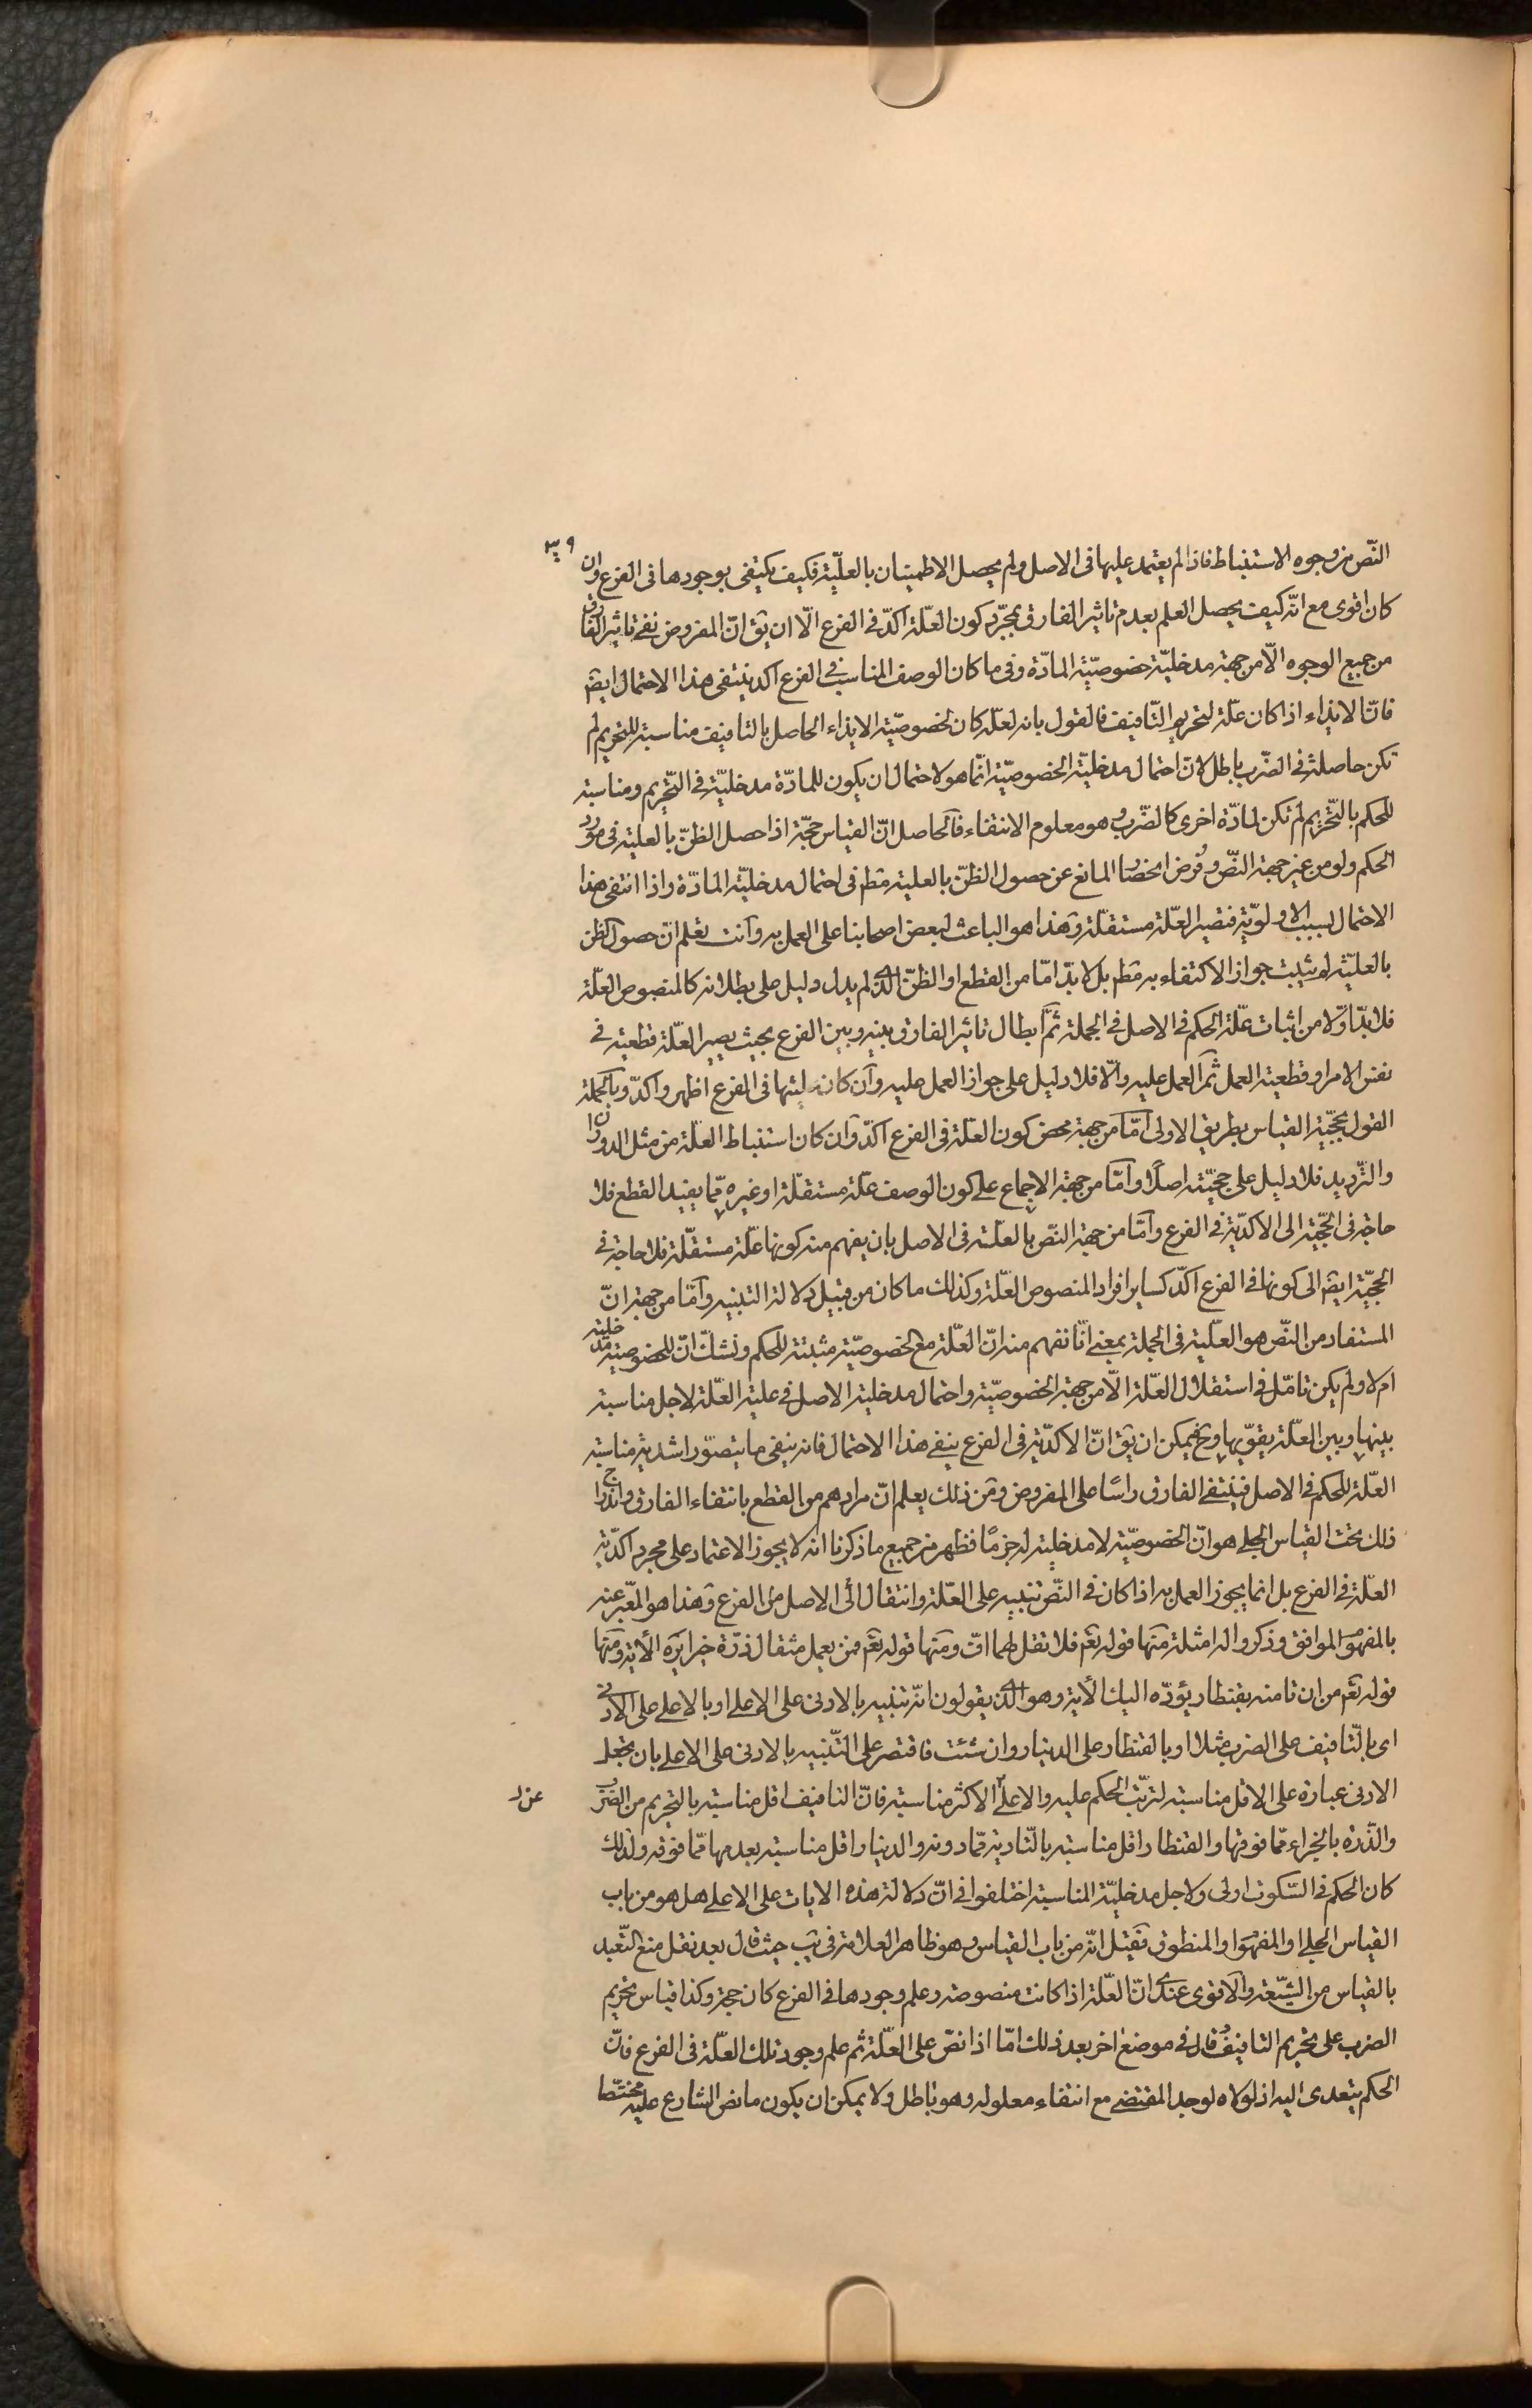 النّص من وجوه الاستنباط فاذا لم يعتمد عليها فى الاصل ولم يحصل الاطمينان بالعليّة فكيف يكتفى بوجودها فى الفرع وان
كان اقوى مع انّه كيف يحصل العلم بعدم تاثير الفارق بمجرّد كون العلّة اكدّ فى الفرع الّا ان يق انّ المفروض نفى تاثير الفارق
من جميع الوجوه الّا من جهة مدخليّة خصوصيّة المادّة وفى ما كان الوصف المناسب فى الفرع اكد ينتفى هذا الاحتمال ايضم
فانّ الايذاء اذا كان علّة لتحريم التّافيف فالقول بانه لعلّه كان لخصوصيّة الايذاء الحاصل بالتافيف مناسبة للتحريم لم
تكن حاصلة فى الضّرب باطل لانّ احتمال مدخليّة الخصوصيّة انّما هو لاحتمال ان يكون للمادّة مدخليّة فى التّحريم ومناسبة
للحكم بالتّحريم لم تكن لمادّة اخرى كالضّرب وهو معلوم الانتفاء فالحاصل انّ القياس حجّة اذا حصل الظنّ بالعلية فى مورد
الحكم ولو من غير جهة النّص وفرض انحصار المانع عن حصول الظنّ بالعلية مطم فى احتمال مدخليّة المادّة واذا انتفى هذا
الاحتمال بسبب الاولويّة فتصير العلّة مستقلّة وهذا هو الباعث لبعض اصحابنا على العمل به وانت تعلم انّ حصول الظن
بالعليّة لم يثبت جواز الاكتفاء به مطم بل لا بدّ امّا من القطع او الظنّ الّذى لم يدل دليل على بطلانه كالمنصوص العلّة
فلا بدّ اوّلا من اثبات علّة الحكم فى الاصل فى الجملة ثمّ ابطال تاثير الفارق بينه وبين الفرع بحيث يصير العلّة قطعية فى
نفس الامر او قطعية العمل ثمّ العمل عليه والّا فلا دليل على جواز العمل عليه وان كان عليتها فى الفرع اظهر واكدّ وبالجملة
القول بحجّية القياس بطريق الاولى امّا من جهة محض كون العلّة فى الفرع اكدّ وان كان استنباط العلّة من مثل الدوران
والتّرديد فلا دليل على حجّيته اصلًا وامّا من جهة الاجماع على كون الوصف علّة مستقلّة او غيره ممّا يفيد القطع فلا
حاجة فى الحجّية الى الاكدّية فى الفرع وامّا من جهة النّص بالعلّة فى الاصل بان يفهم منه كونها علّة مستقلّة فلا حاجة فى
الحجيّة ايضم الى كونها فى الفرع اكدّ كساير افراد المنصوص العلّة وكذلك ما كان من قبيل دلالة التنبيه وامّا من جهة انّ
المستفاد من النّص هو العليّة فى الجملة بمعنى انّا نفهم منه انّ العلّة مع الخصوصيّة مثبتة للحكم ونشكّ انّ للخصوصية مدخلية
ام لا ولم يكن تامّل فى استقلال العلّة الّا من جهة الخصوصيّة واحتمال مدخلية الاصل فى علية العلّة لاجل مناسبة
بينها وبين العلّة يقوّيها وح فيمكن ان يق انّ الاكدّية فى الفرع ينفى هذا الاحتمال فانه ينفى ما يتصوّر اشدية مناسبة
العلّة للحكم فى الاصل فينتفى الفارق راسًا على المفروض ومن ذلك يعلم انّ مرادهم من القطع بانتفاء الفارق واندراج
ذلك تحت القياس الجلى هو انّ الخصوصيّة لا مدخلية له جزمًا فظهر من جميع ما ذكرنا انه لا يجوز الاعتماد على مجرد اكدّية
العلّة فى الفرع بل انما يجوز العمل به اذا كان فى النّص تنبيه على العلّة وانتقال الى الاصل من الفرع وهذا هو المعبّر عنه
بالمفهوم الموافق وذكروا له امثلة منها قوله تعم فلا تقل لهما افّ ومنها قوله تعم فمن يعمل مثقال ذرّة خيرا يره الآية ومنها
قوله تعم من ان تامنه بقنطار يؤدّه اليك الآية وهو الّذى يقولون انّه تنبيه بالادنى على الاعلى او بالاعلى على الادنى
اى بالتّافيف على الضرب مثلا او بالقنطار على الدينار وان شئت فاقتصر على التّنبيه بالادنى على الاعلى بان يجعل
الادنى عبارة على الاقل مناسبة لترتّب الحكم عليه والاعلى الاكثر مناسبة فانّ التافيف اقل مناسبة بالتحريم من الضّرب
عن ل
والذّرة بالجزاء ممّا فوقها والقنطار اقل مناسبة بالتّادية ممّا دونه والدينار اقل مناسبة بعدمها ممّا فوقه ولذلك
كان الحكم فى السّكوت اولى ولاجل مدخليّة المناسبة اختلفوا فى انّ دلالة هذه الايات على الاعلى هل هو من باب
القياس الجلى او المفهوم او المنطوق فقيل انّه من باب القياس وهو ظاهر العلامة فى يب حيث قال بعد نقل منع التّعبد
بالقياس من الشّيعة والاقوى عندى انّ العلّة اذا كانت منصوصة وعلم وجودها فى الفرع كان حجة وكذا قياس تحريم
الضرب على تحريم التافيف وقال فى موضع اخر بعد ذلك امّا اذا نصّ على العلّة ثم علم وجود تلك العلّة فى الفرع فانّ
الحكم يتعدى اليه اذ لولاه لوجد المقتضى مع انتفاء معلوله وهو باطل ولا يمكن ان يكون ما نص الشارع عليه مختصّا